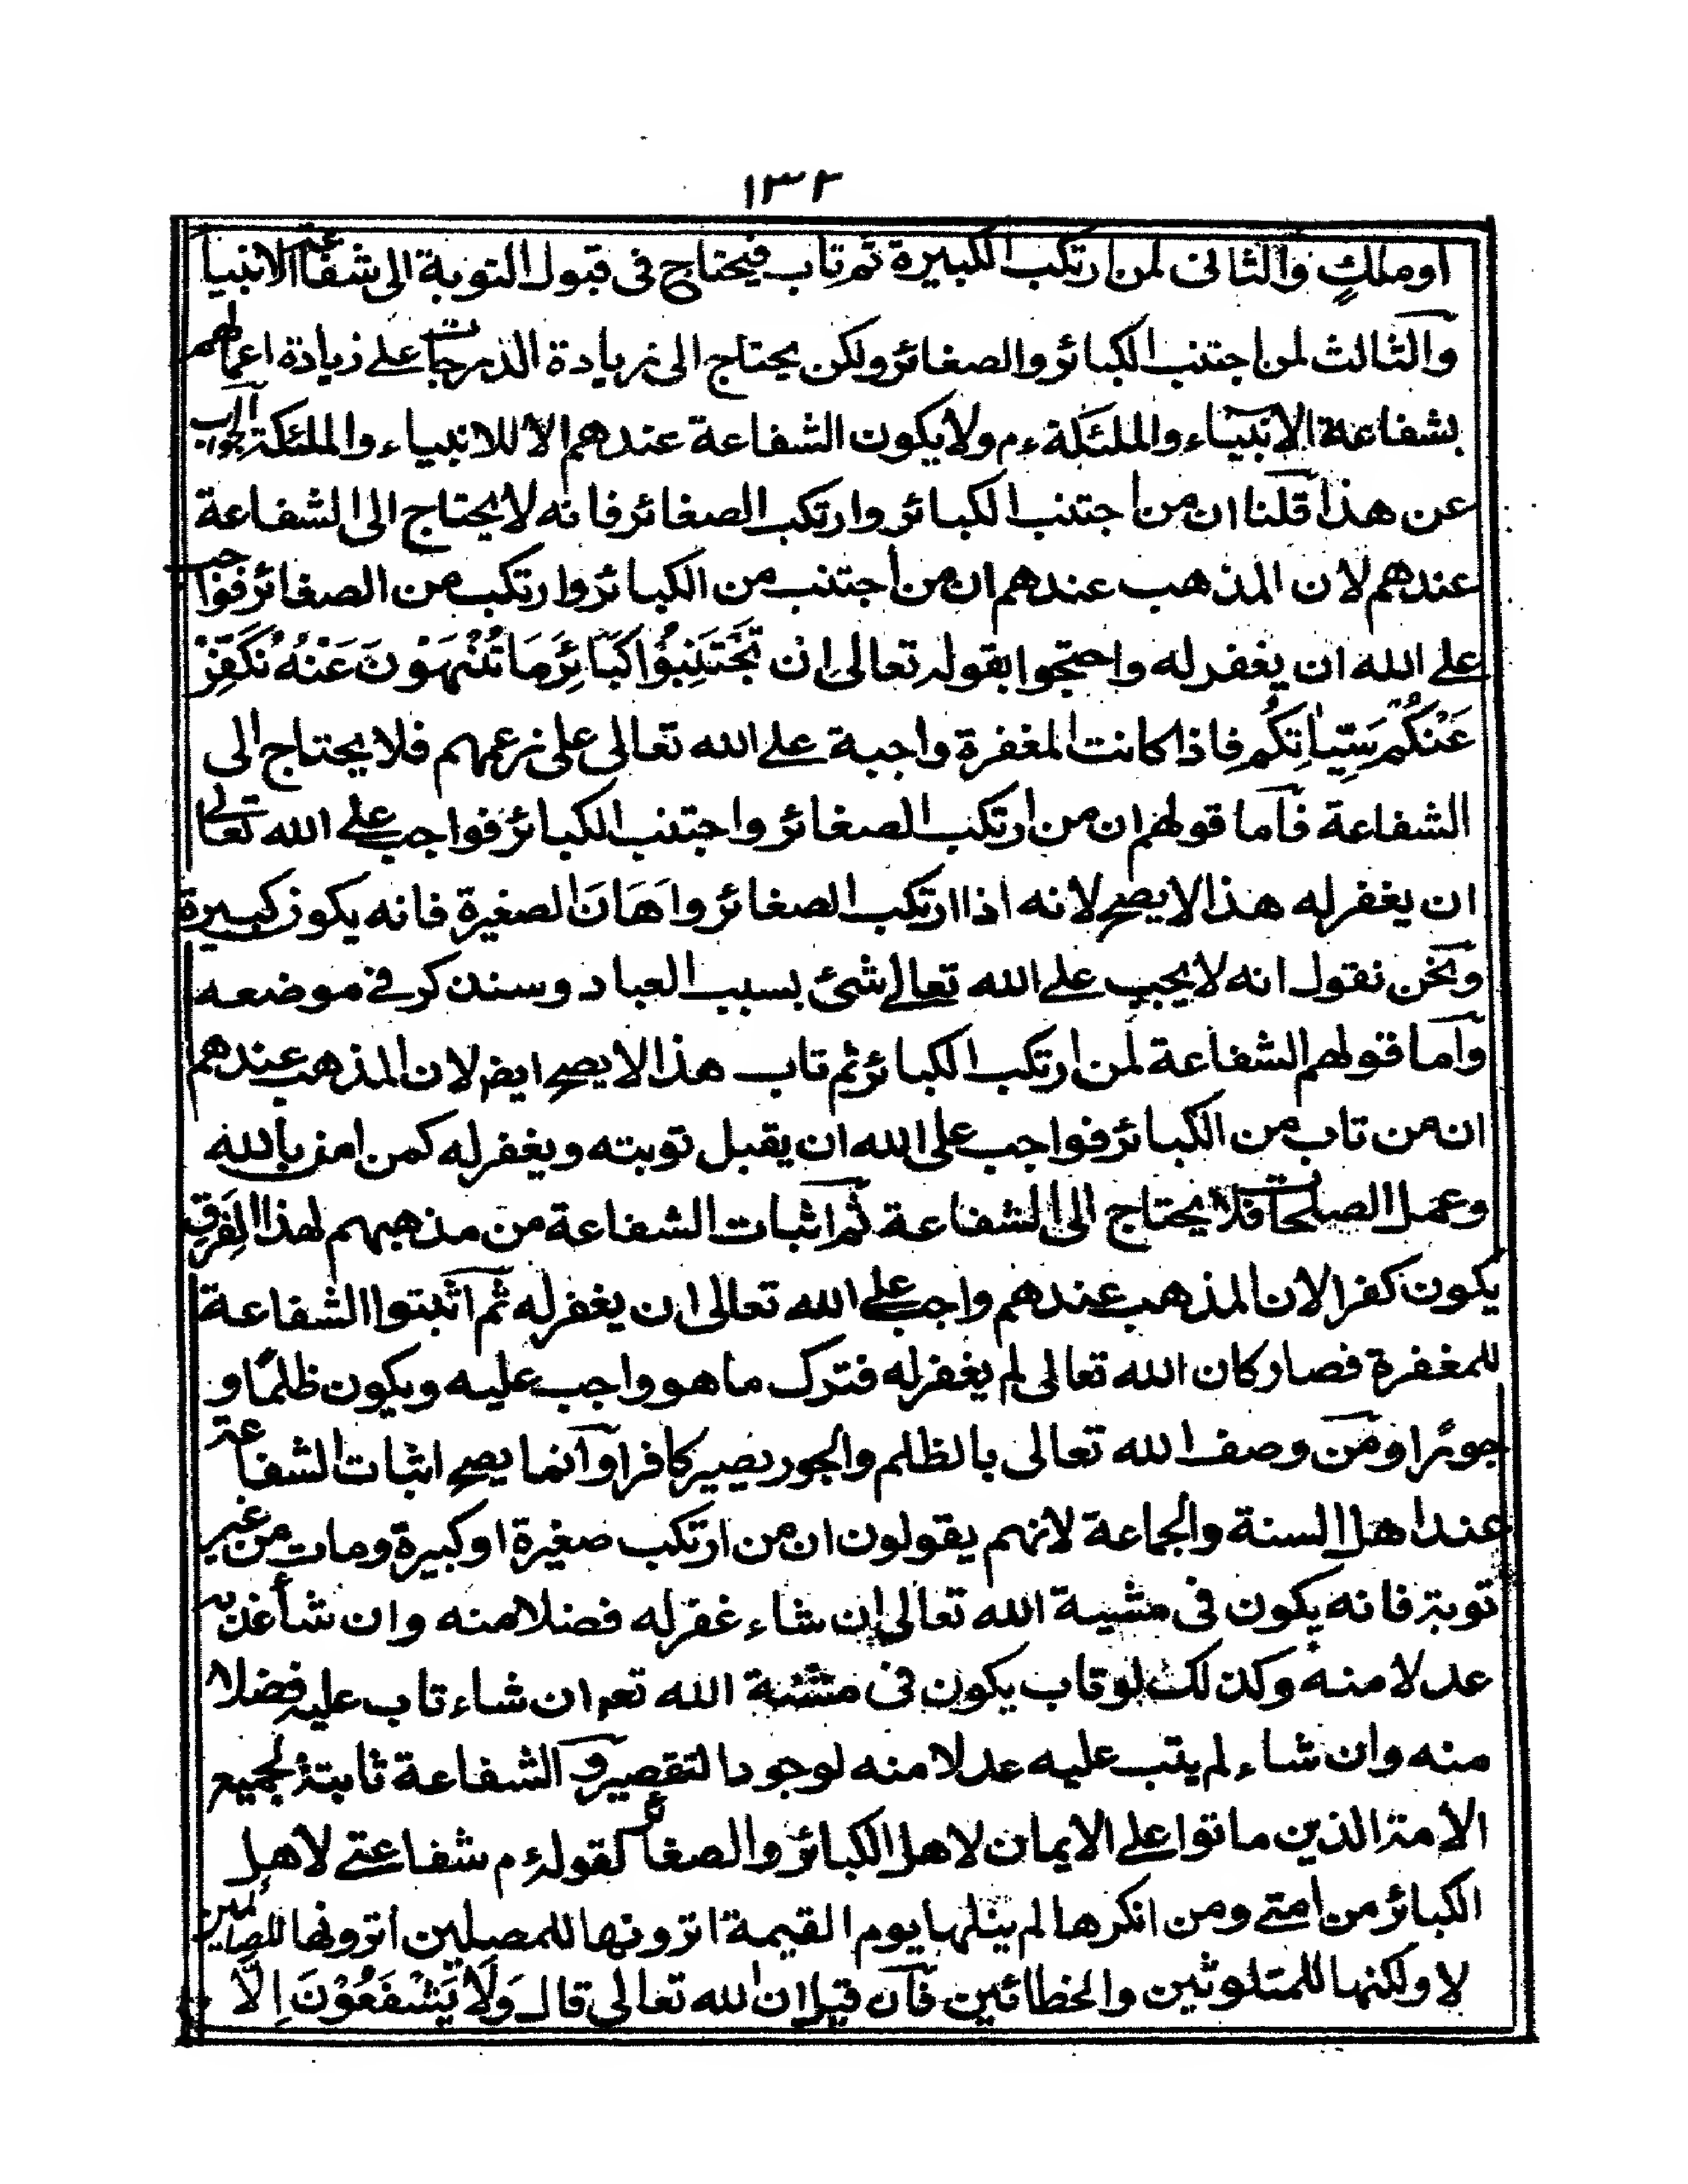 ١٣٢
او ملكٍ والثانى لمن ارتكب الكبيرة ثم تاب فيحتاج فى قبول التوبة الى شفاعة الانبيا
والثالث لمن اجتنب الكبائر والصغائر ولكن يحتاج الى زيادة الدرجات على زيادة اعمالهم
بشفاعة الانبياء والملئكة ءم ولا يكون الشفاعة عندهم الا للانبياء والملئكة الجواب
عن هذا قلنا ان من اجتنب الكبائر وارتكب الصغائر فانه لا يحتاج الى الشفاعة
عندهم لان المذهب عندهم ان من اجتنب من الكبائر وارتكب من الصغائر فواجب
على الله ان يغفر له واحتجوا بقوله تعالى اِن تَجْتَنِبُوْا كَبَآئِرَ مَا تُنْهَوْنَ عَنْهُ نُكَفِّرْ
عَنْكُمْ سَيِّاٰتِكُمْ فاذا كانت المغفرة واجبة على الله تعالى على زعمهم فلا يحتاج الى
الشفاعة فآما قولهم ان من ارتكب الصغائر واجتنب الكبائر فواجب على الله تعالى
ان يغفر له هذا لا يصح لانه اذا ارتكب الصغائر واَهَانَ الصغيرة فانه يكون كبيرة
ونحن نقول انه لا يجب على الله تعالى شئ بسبب العباد وسنذكر فى موضعه
وآما قولهم الشفاعة لمن ارتكب الكبائر ثم تاب هذا لا يصح ايضا لان المذهب عندهم
ان من تاب من الكبائر فواجب على الله ان يقبل توبته ويغفر له كمن امن بالله
وعمل الصلحات فلا يحتاج الى الشفاعة ثم اثبات الشفاعة من مذهبهم لهذا الفَرقِ
يكون كفرا لان المذهب عندهم واجب على الله تعالى ان يغفر له ثم آثبتوا الشفاعة
للمغفرة فصار كان الله تعالى لم يغفر له فترك ما هو واجب عليه ويكون ظلمًا و
جورًا ومن وصف الله تعالى بالظلم والجور يصير كافرا وآنما يصح اثبات الشفاعة
عند اهل السنة والجماعة لانهم يقولون ان من ارتكب صغيرة او كبيرة ومات من غير
توبة فانه يكون فى مشية الله تعالى ان شاء غفر له فضلا منه وان شاء عذبه
عدلا منه وكذلك لو تاب يكون فى مشئية الله تعم ان شاء تاب عليه فضلا
منه وان شاء لم يتب عليه عدلا منه لوجود التقصير و الشفاعة ثابتة لجميع
الامة الذين ماتوا على الايمان لاهل الكبائر والصغائر لقوله ءم شفاعتى لاهل
الكبائر من امتى ومن انكرها لم ينلها يوم القيمة اترونها للمصلين اترونها للصائمين
لا ولكنها للمتلوثين والخطائين فآن قيل ان الله تعالى قال وَلَا يَشْفَعُوْنَ اِلَّا